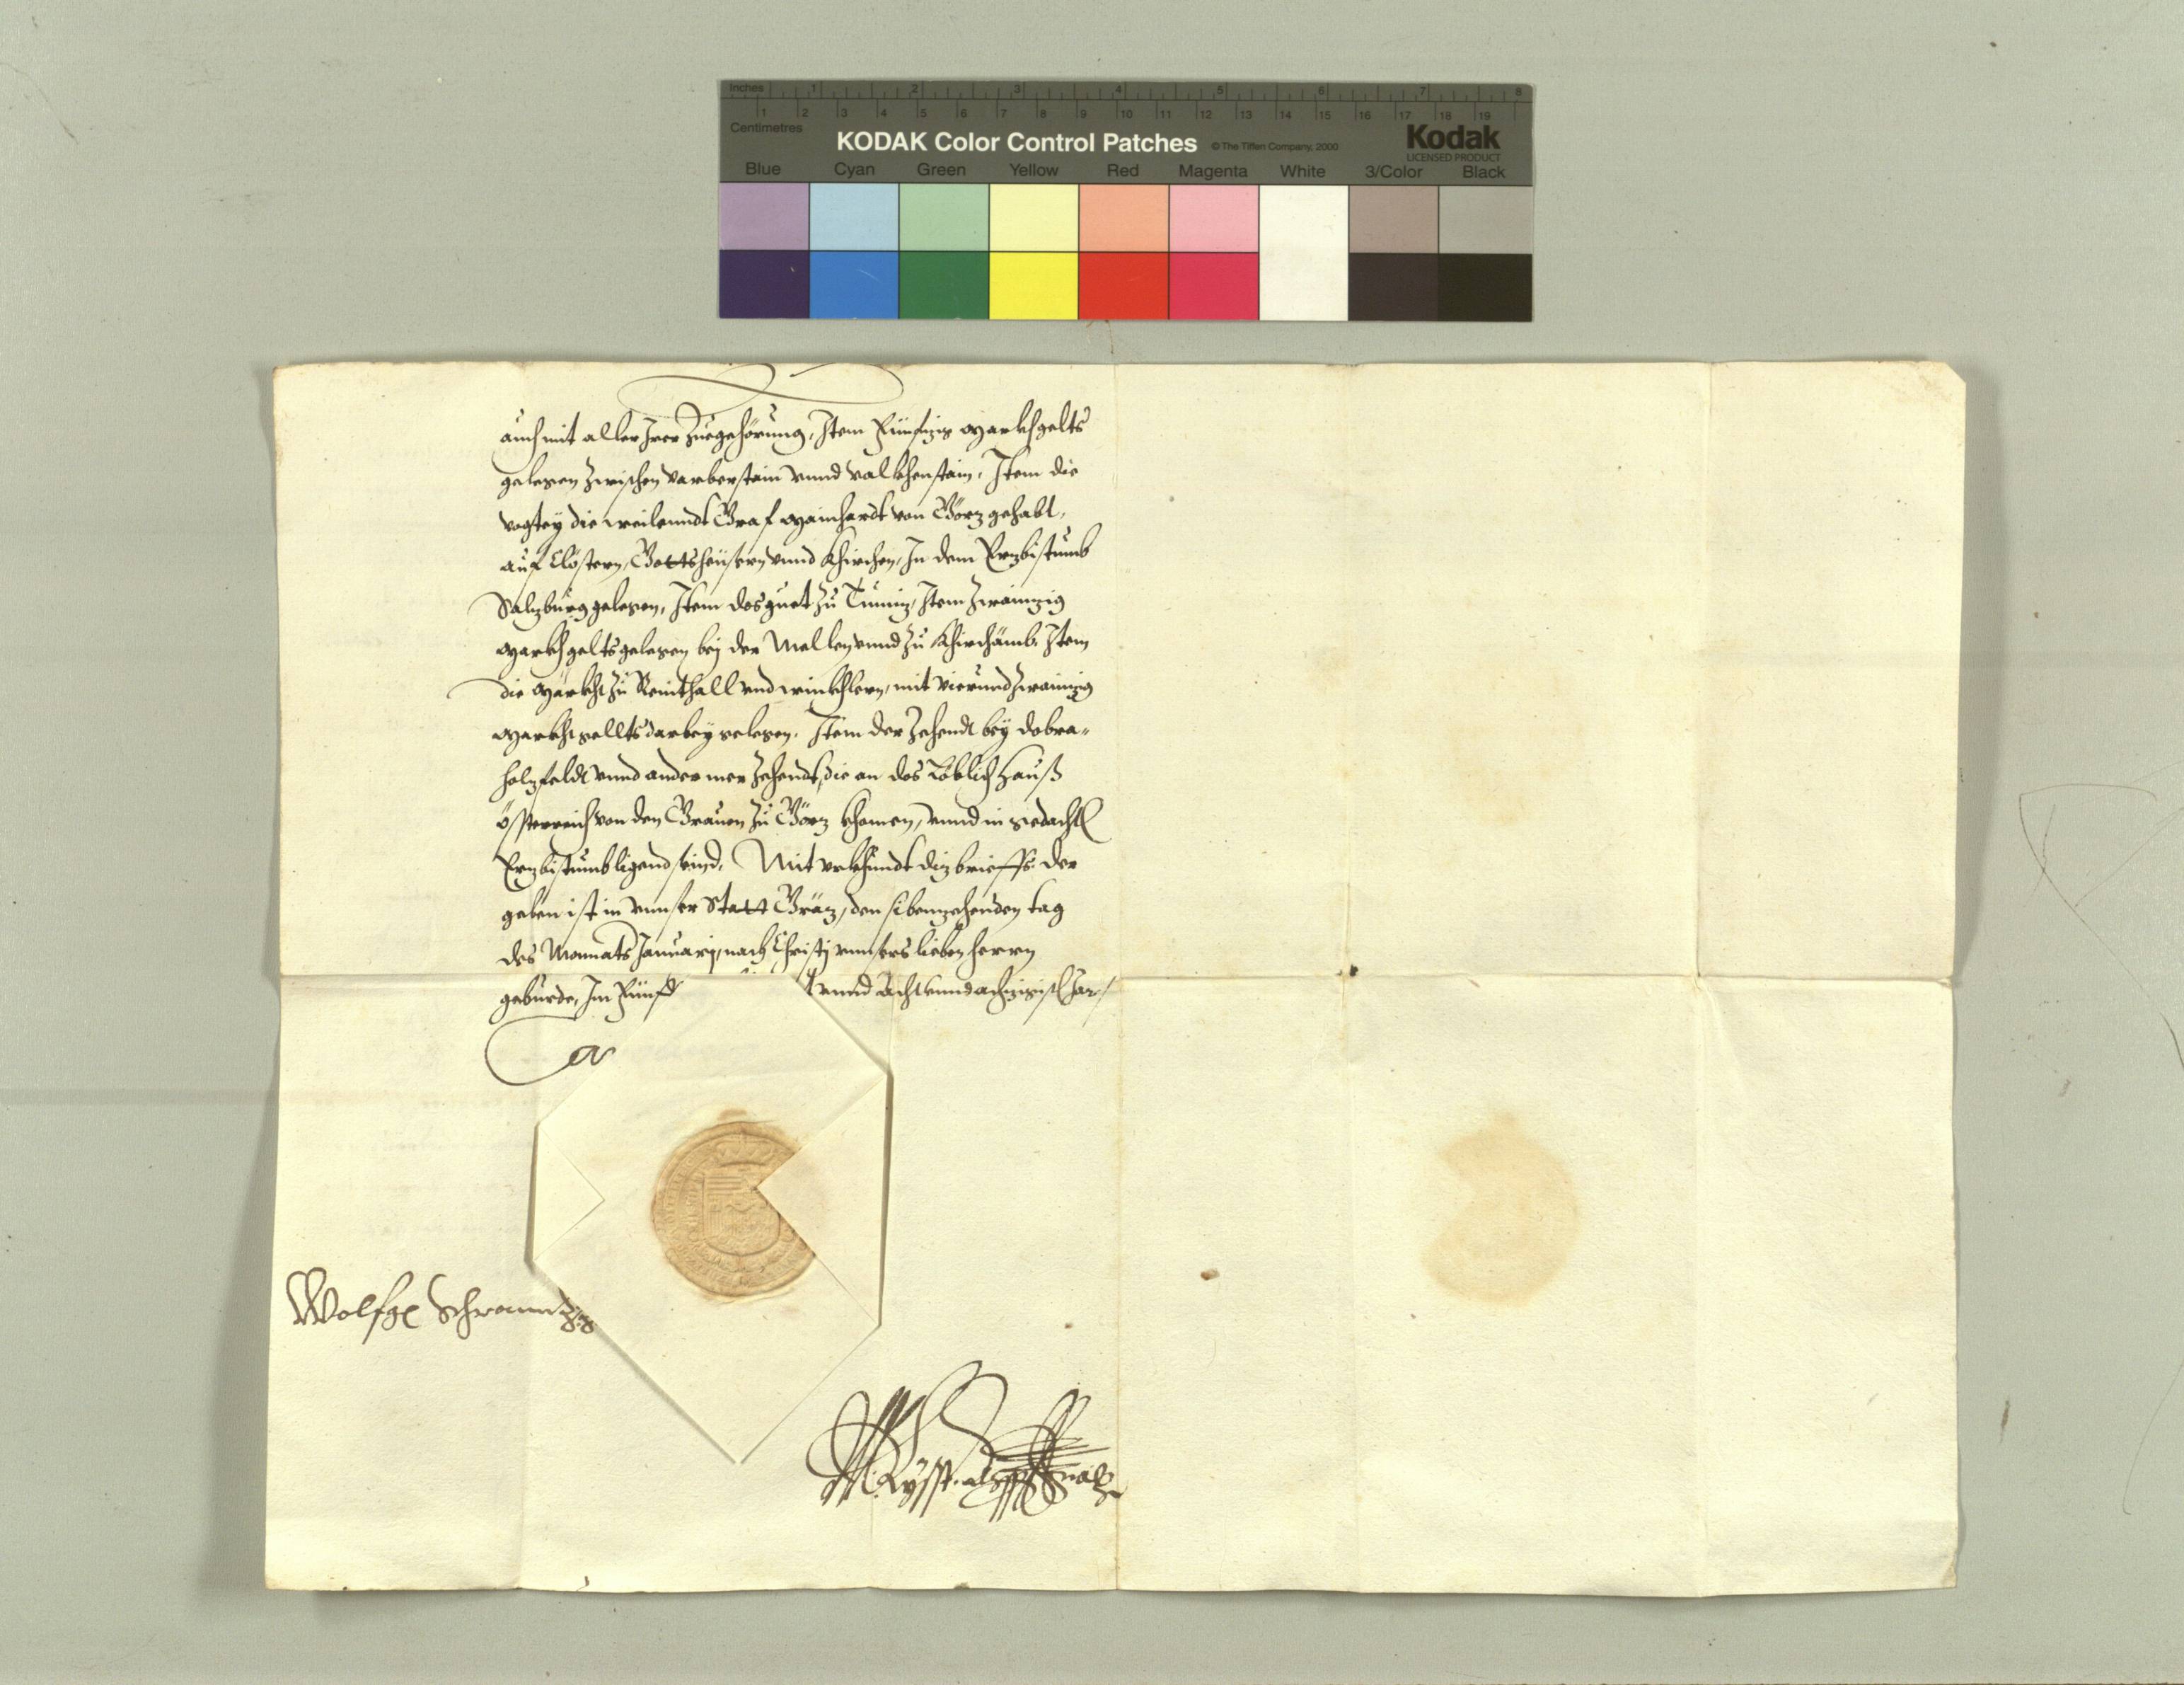 Inches 1 2 3 4 5 6 7 8
1 2 3 4 5 6 7 8 9 10 11 12 13 14 15 16 17 18 19
Centimetres
KODAK Color Control Patches © The Tiffen Company, 2000 Kodak
LICENSED PRODUCT
Blue Cyan Green Yellow Red Magenta White 3/Color Black
auch mit aller Irer Zuegehörung, Item Fünfzig Markhgelts
gelegen zwischen Varberstain vnnd Valkhenstain, Item die
Vogtey die weilenndt Graf Mainhardt von Görz gehabt,
auf Clöstern, Gottsheüsern vnnd Khirchen, In dem Erzbistumb
Salzburg gelegen, Item das guet zu Einiz, Item Zwainzig
Markhgelts gelegen bej der Mellen vnnd zu Khirchaimb, Item
die Märkht zu Remthall vnd Winkhlern, mit Vierundzwainzig
Markhgellts darbey gelegen. Item der Zehendt bey Dobra-
holzfeldt vnnd ander mer Zehendt, die an das Löblich Hauß
Österreich von den Grauen zu Görz khomen, vnnd in gedachtn
Erzbistumb ligend seind. Mit vrkhundt diz brieffs. Der
geben ist in vnnser Statt Gräz, den sibenzehenden tag
des Monnats Januarj, nach Christj vnnsers lieben herrn
geburde, Im Fünf vnnd Acht vnndachzigistn Jar
Wolfg Schranntz